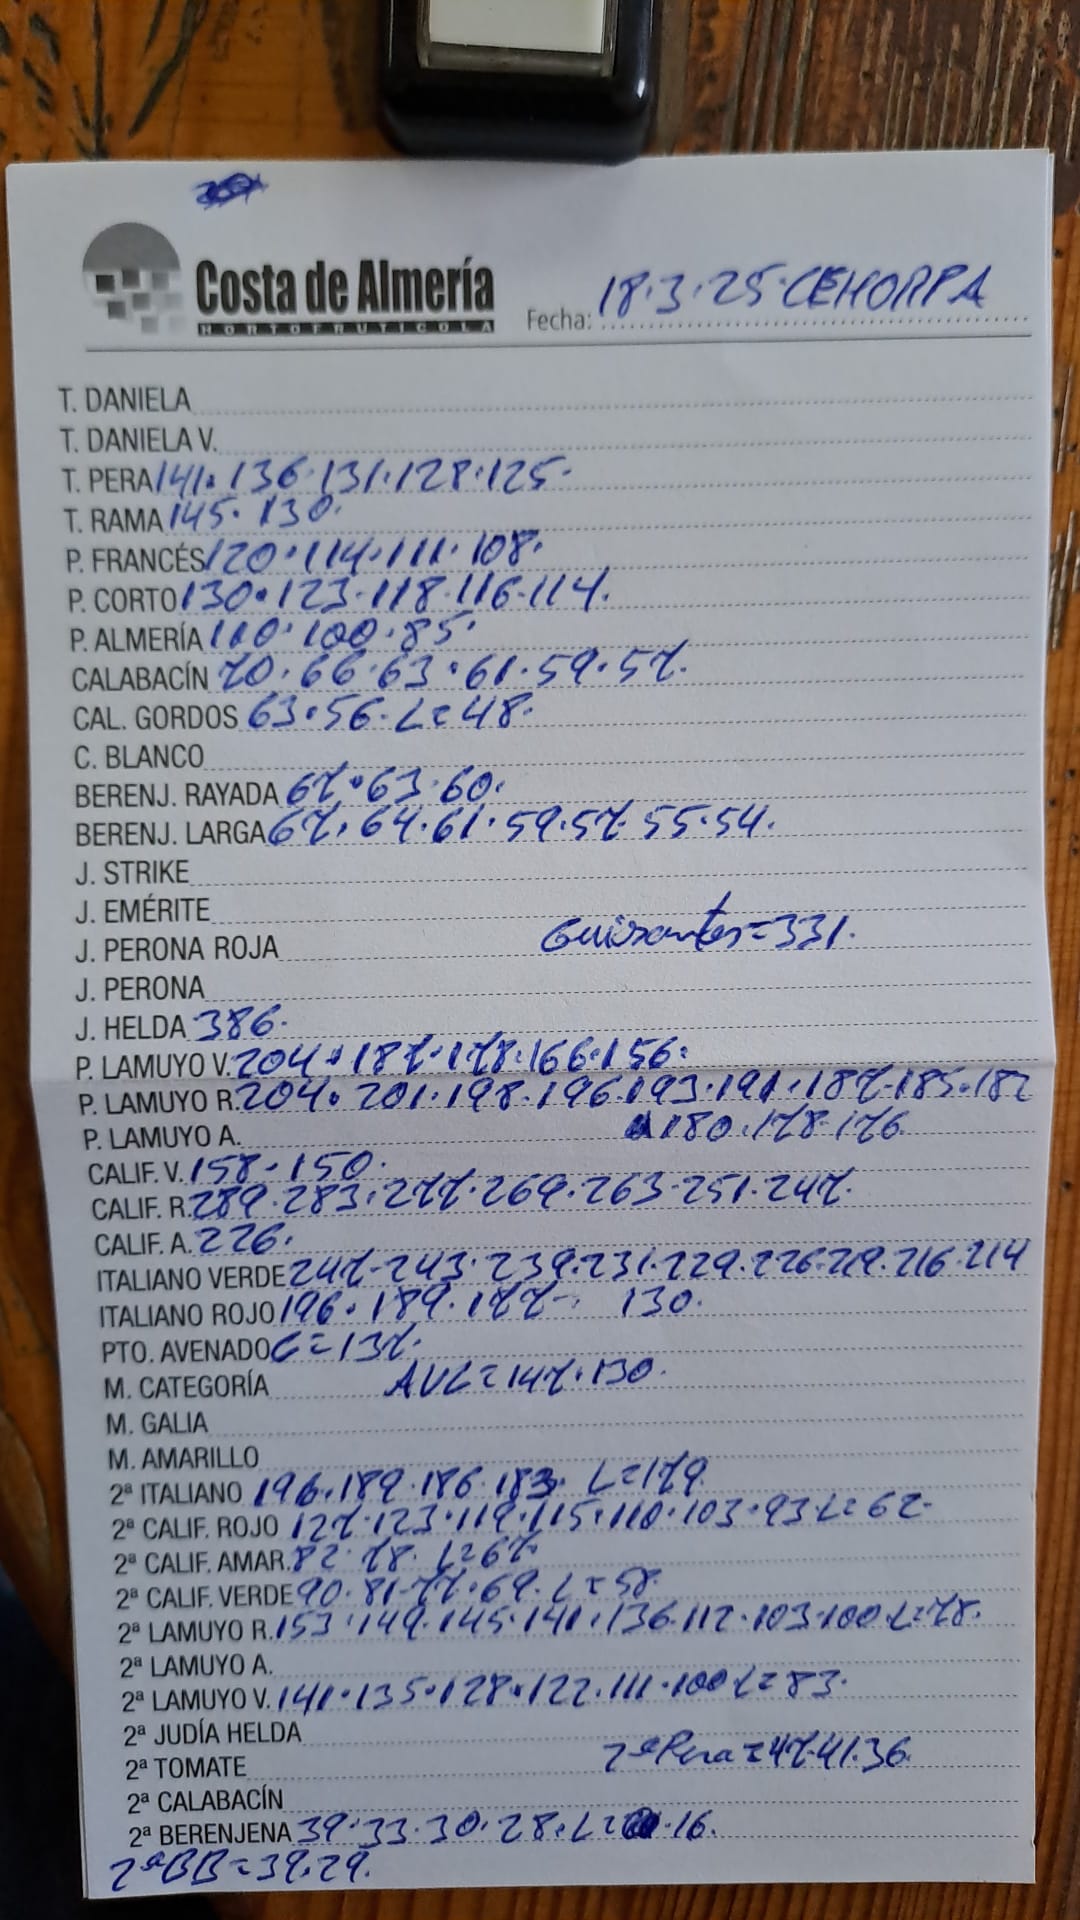 Costa de Almería
HORTOFRUTICOLA
Fecha: 18·3·25·CEHORPA
T. DANIELA
T. DANIELA V.
T. PERA 141·136·131·128·125·
T. RAMA 145·130·
P. FRANCÉS 120·114·111·108·
P. CORTO 130·123·118·116·114·
P. ALMERÍA 110·100·85·
CALABACÍN 70·66·63·61·59·57·
CAL. GORDOS 63·56·L=48·
C. BLANCO
BERENJ. RAYADA 67·63·60·
BERENJ. LARGA 67·64·61·59·57·55·54·
J. STRIKE
J. EMÉRITE
J. PERONA ROJA Guisantes=331·
J. PERONA
J. HELDA 386·
P. LAMUYO V. 204·187·178·166·156·
P. LAMUYO R. 204·201·198·196·193·191·187·185·182
P. LAMUYO A. 180·178·176
CALIF. V. 158·150·
CALIF. R. 289·283·277·269·263·251·247·
CALIF. A. 226·
ITALIANO VERDE 247·243·239·231·229·226·219·216·214
ITALIANO ROJO 196·189·177· 130·
PTO. AVENADO C=137·
M. CATEGORÍA AVL=147·130·
M. GALIA
M. AMARILLO
2ª ITALIANO 196·189·186·183· L=179
2ª CALIF. ROJO 127·123·119·115·110·103·93·L=62·
2ª CALIF. AMAR. 82·78· L=67·
2ª CALIF. VERDE 90·81·77·69·L=58·
2ª LAMUYO R. 153·149·145·141·136·112·103·100·L=78·
2ª LAMUYO A.
2ª LAMUYO V. 141·135·128·122·111·100 L=83·
2ª JUDÍA HELDA
2ª TOMATE 2ª Pera=47·41·36
2ª CALABACÍN
2ª BERENJENA 39·33·30·28·L= 16·
2ªBB=39·29·